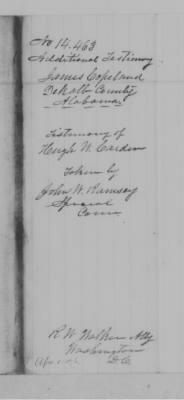 No 14.463
Additional Testimony
James Copeland
Dekalb County
Alabama
Testimony of
Hugh W. Carden
Taken by
John W. Ramsey
Special
Com
R W Walker Atty
Washington
D C